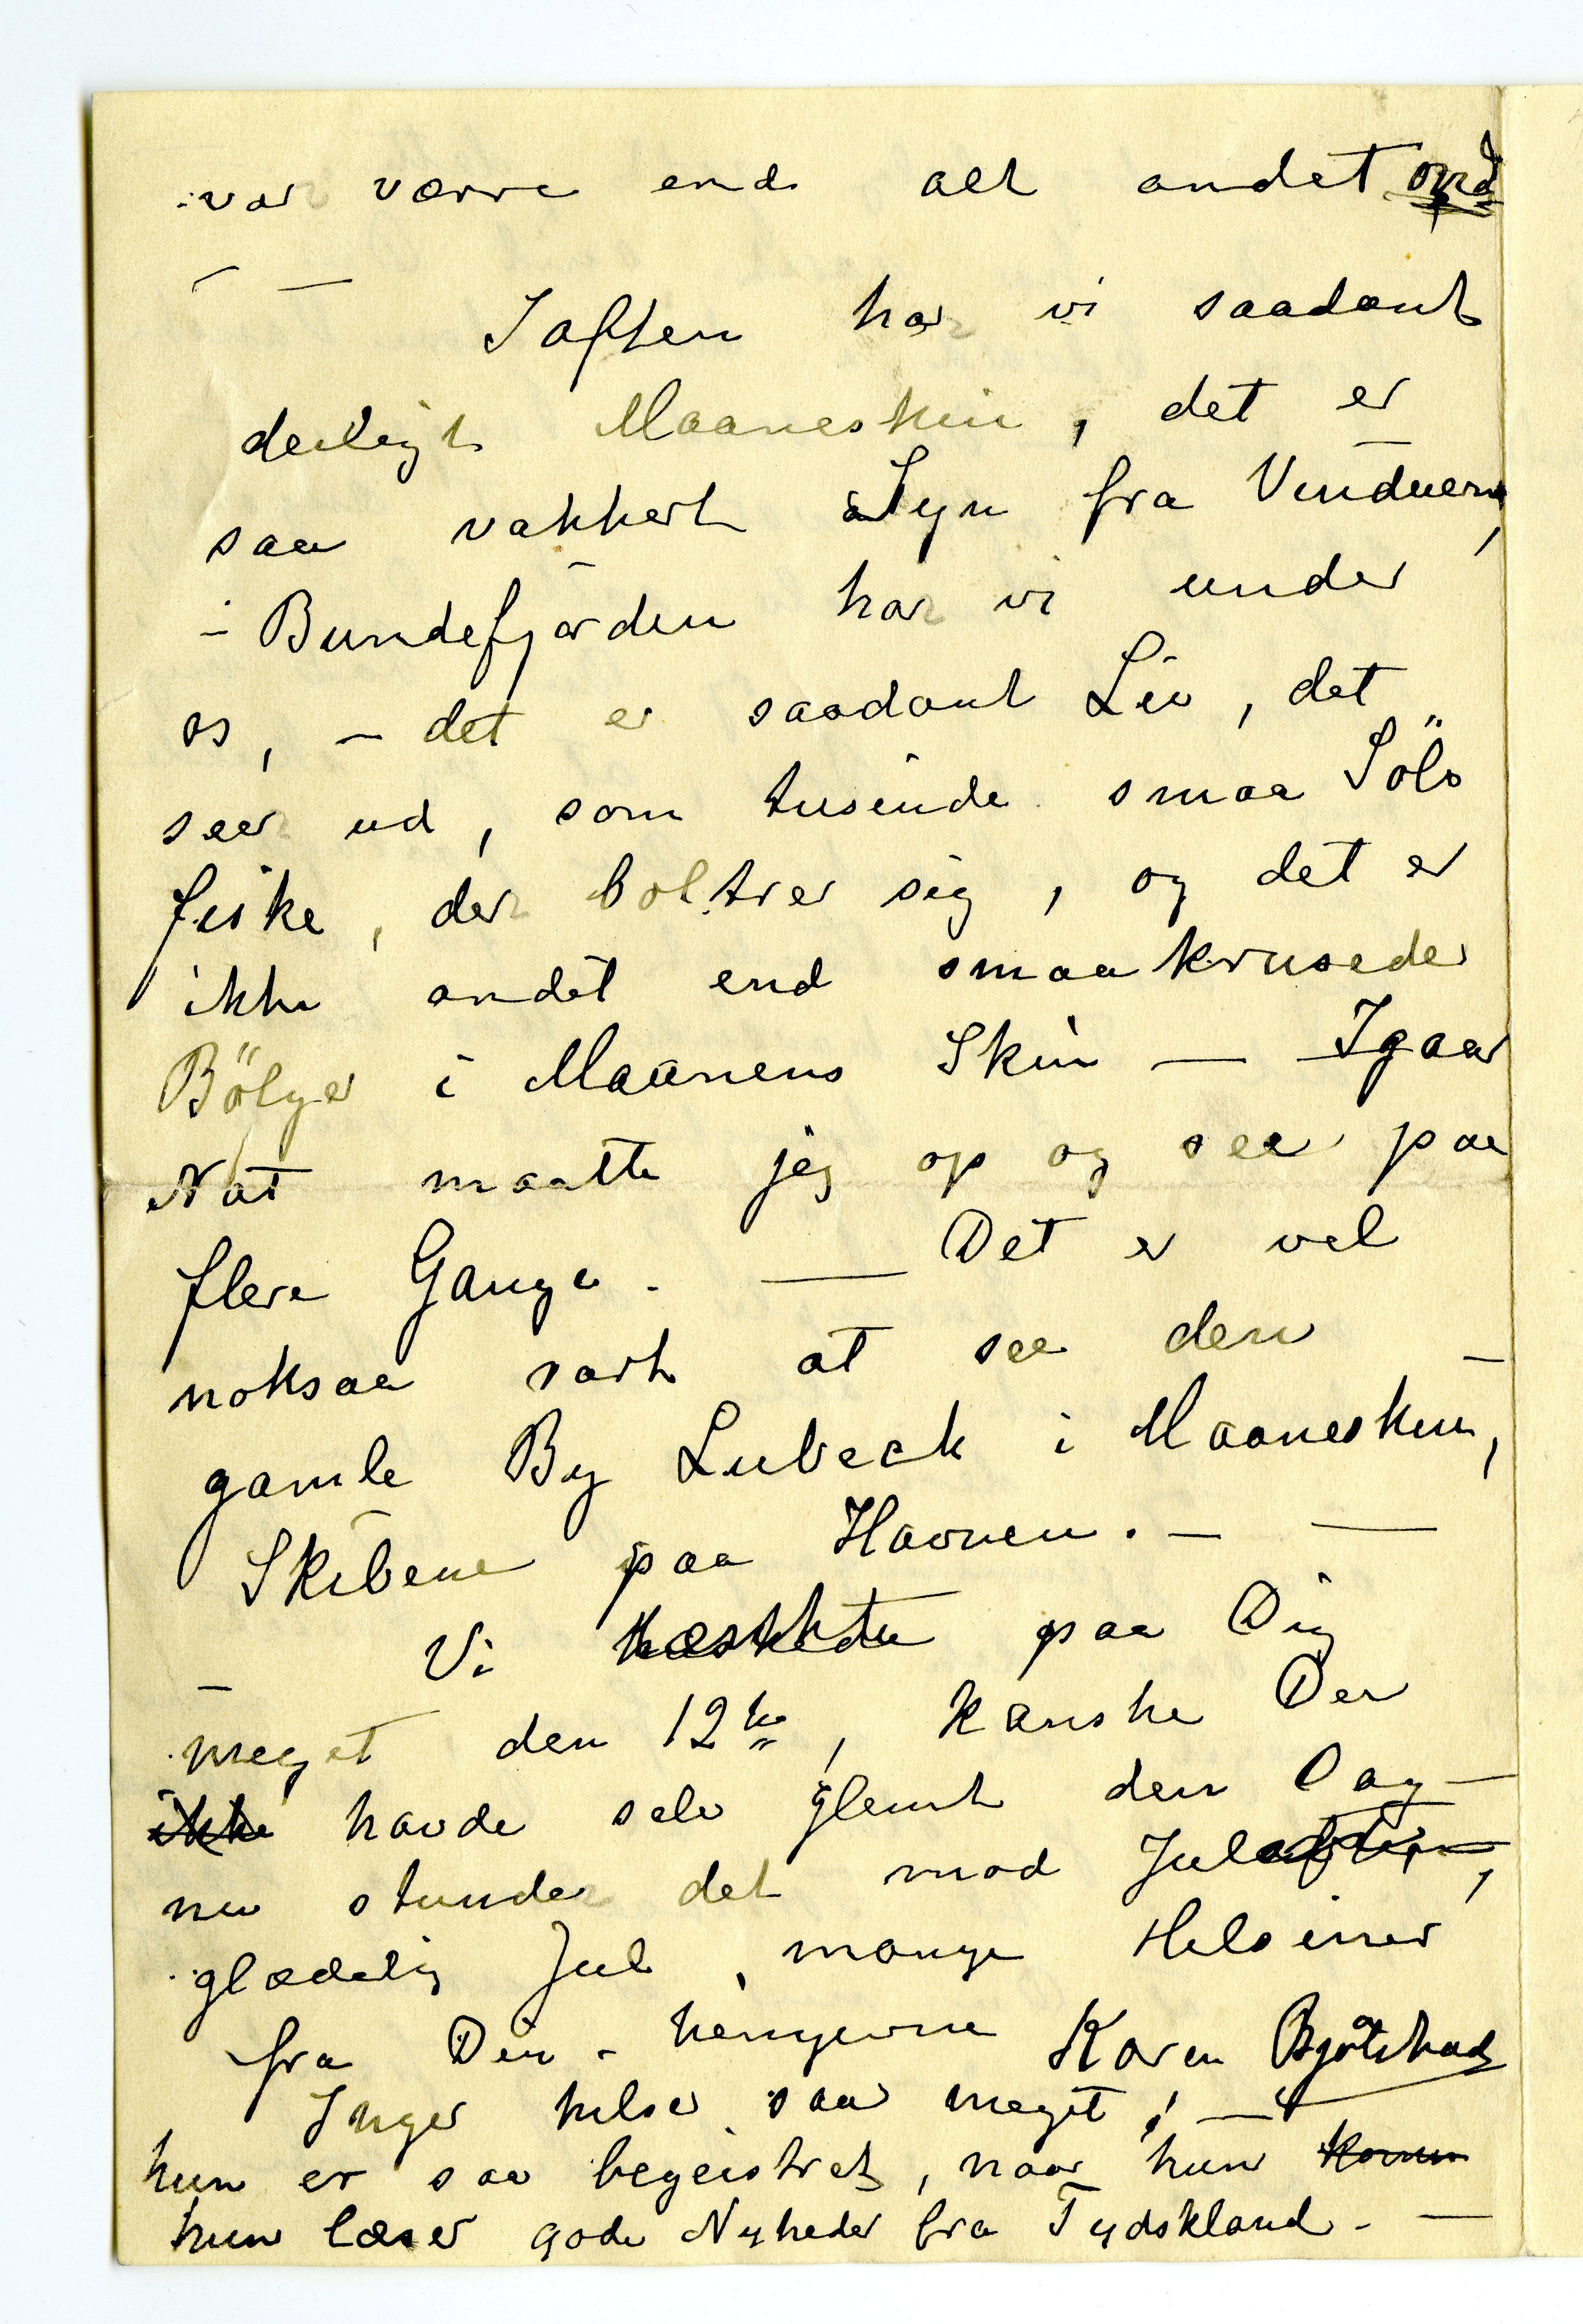 var værre end alt andet ondt
— — Iaften har vi saadant
deiligt Maaneskin, det er
saa vakkert Syn fra Vinduerne,
– Bundefjorden har vi under
os, – det er saadant Liv, det
seer ud, som tusinde smaa Sölv
fiske, der boltrer sig, og det er
ikke andet end smaa krusede
Bölger i Maanens Skin — Igaar
Nat maatte jeg op og see paa
flere Gange. — Det er vel
noksaa rart at see den –
gamle By Lubeck i Maaneskin,
Skibene paa Havnen. — —
Vi tænkte paa Dig
– meget den 12te, kanske Du
ikke havde selv glemt den Dag —
nu stunder det mod Juleaften,
glædelig Jul, mange Helsiner
fra Din hengivne Karen Bjølstad
Inger hilser saa meget, —
hun er saa begeistret, naar hun
hun læser gode Nyheder fra Tydskland. —